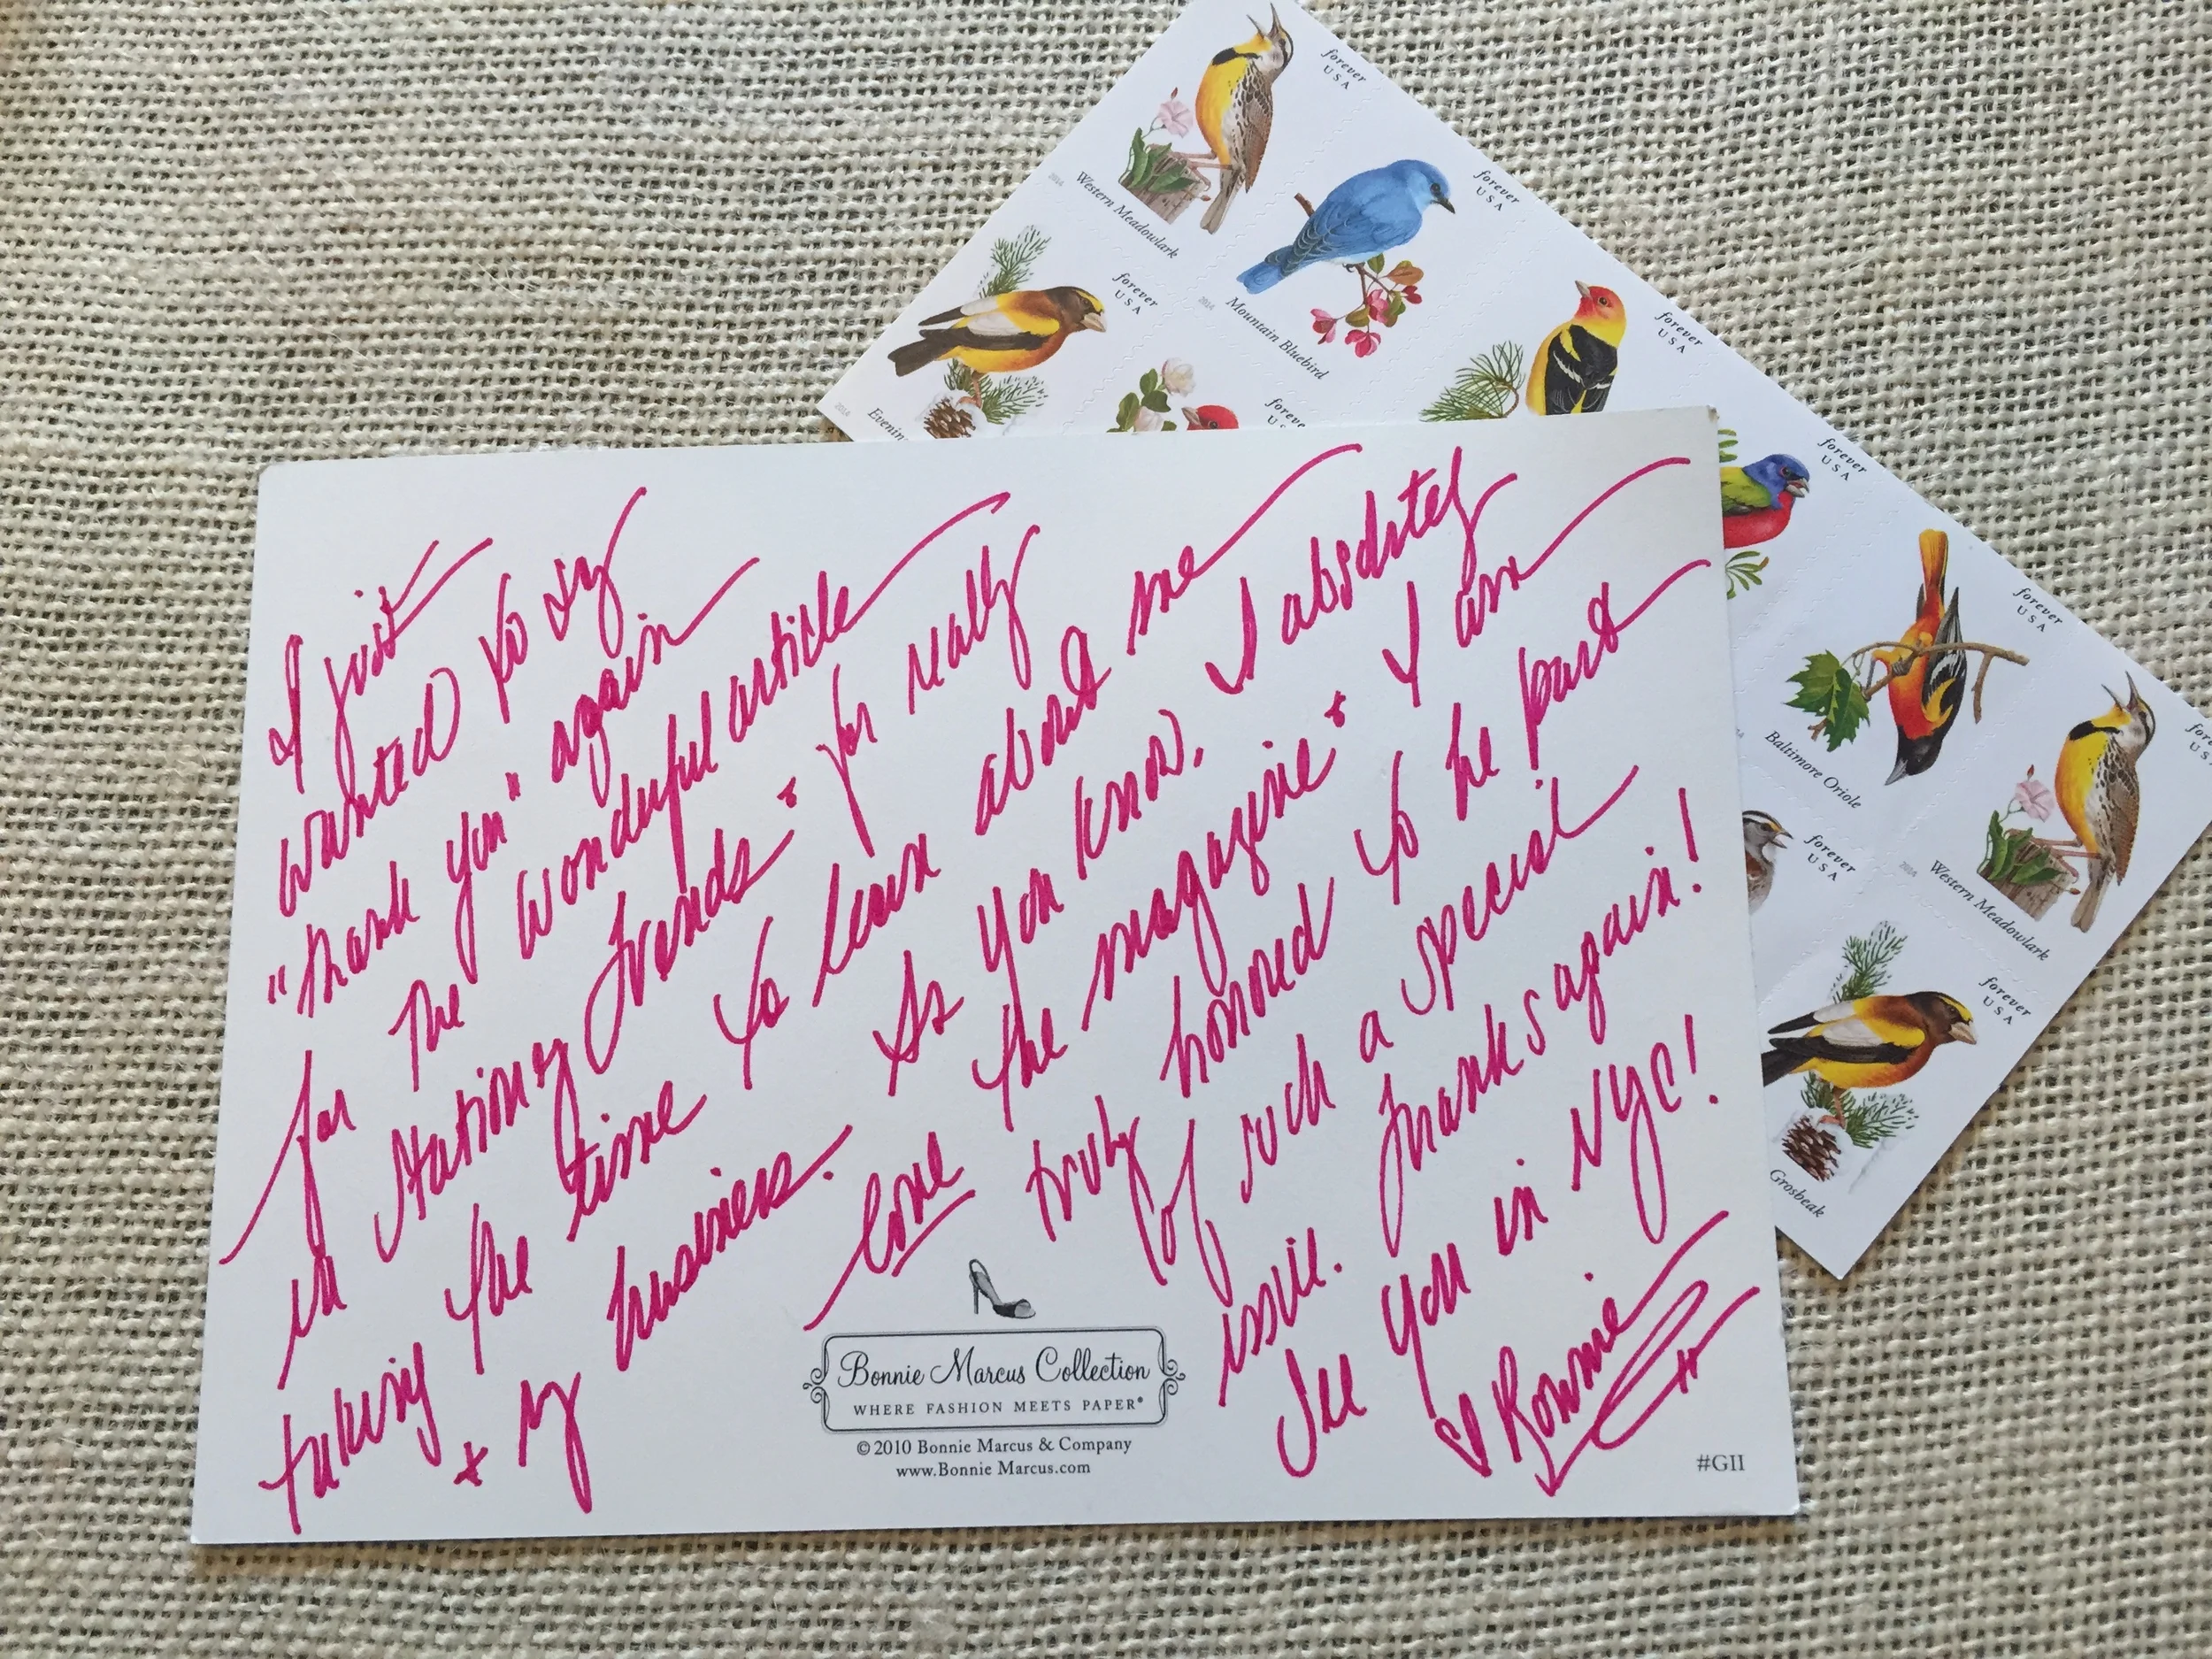 forever
USA
Western Meadowlark
2014
forever
USA
Mountain Bluebird
2014
forever
USA
Evenin
2014
forever
USA
foreve
US
forever
USA
Baltimore Oriole
forever
USA
forever
USA
Western Meadowlark
2014
forever
US
forever
USA
Grosbeak
I just
wanted to say
"thank you" again
for the wonderful article
in Stationery Trends & for really
taking the time to learn about me
& my business. As you know, I absolutely
love the magazine & I am
truly honored to be part
of such a special
issue. Thanks again!
See you in NYC!
Bonnie
Bonnie Marcus Collection
WHERE FASHION MEETS PAPER®
© 2010 Bonnie Marcus & Company
www.Bonnie Marcus.com
#GII